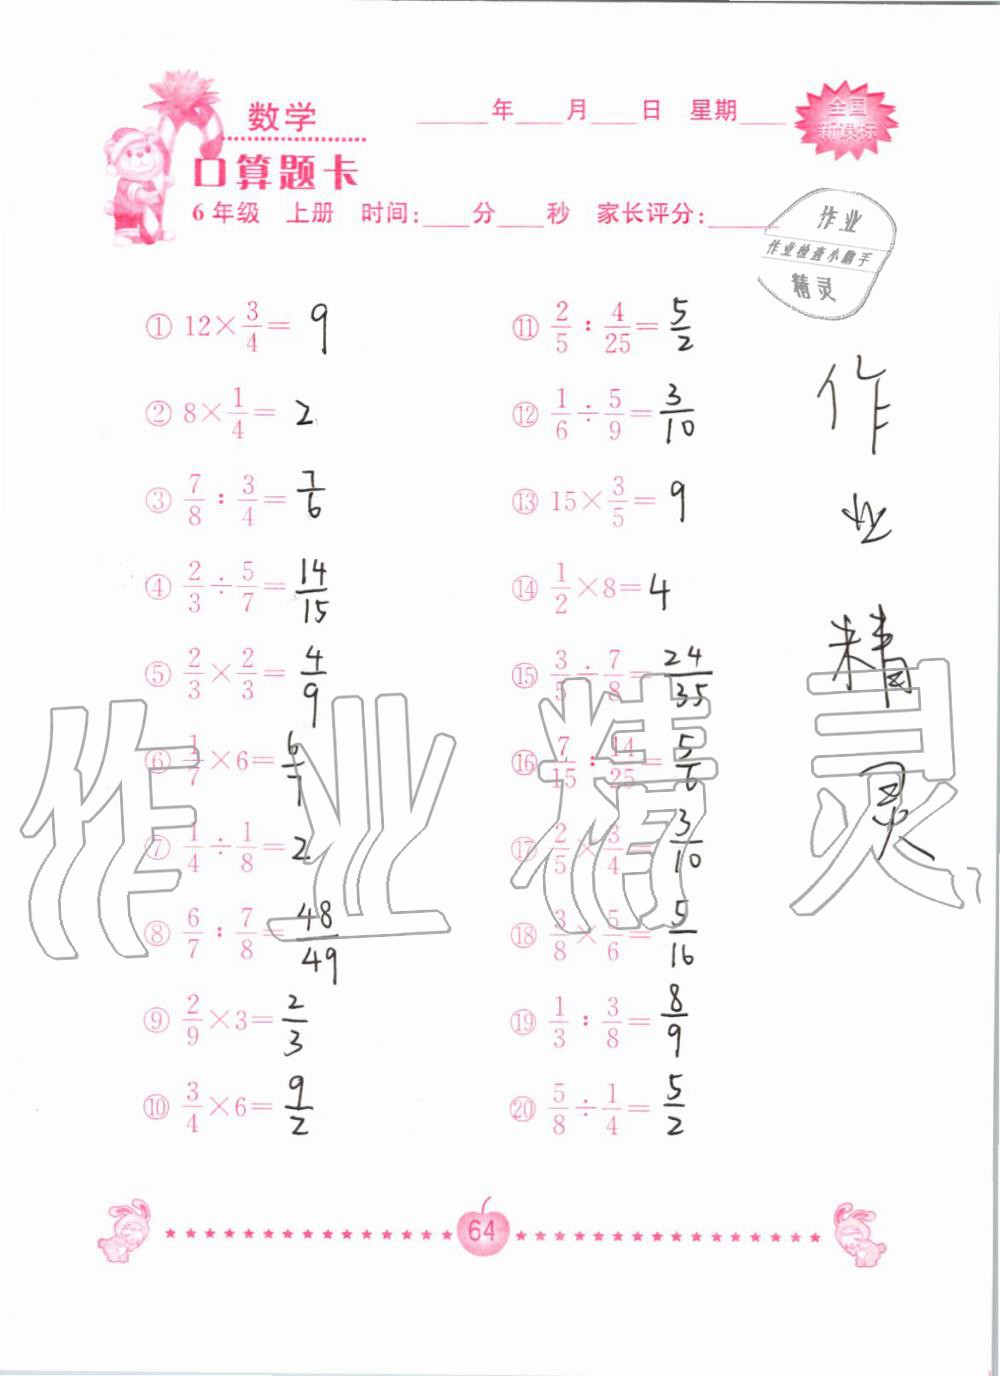 数学 ____年____月____日 星期____
全国
新课标
口算题卡
6年级 上册 时间:____分____秒 家长评分:____
作业
作业检查小助手
精灵
① 12×3/4= 9
② 8×1/4= 2
③ 7/8 : 3/4= 7/6
④ 2/3÷5/7= 14/15
⑤ 2/3×2/3= 4/9
⑥ 1/7×6= 6/7
⑦ 1/4÷1/8= 2
⑧ 6/7 : 7/8= 48/49
⑨ 2/9×3= 2/3
⑩ 3/4×6= 9/2
⑪ 2/5 : 4/25= 5/2
⑫ 1/6÷5/9= 3/10
⑬ 15×3/5= 9
⑭ 1/2×8= 4
⑮ 3/5÷7/8= 24/35
⑯ 7/15 : 14/25= 5/6
⑰ 2/5×3/4= 3/10
⑱ 3/8×5/6= 5/16
⑲ 1/3 : 3/8= 8/9
⑳ 5/8÷1/4= 5/2
作业精灵
作业精灵
64